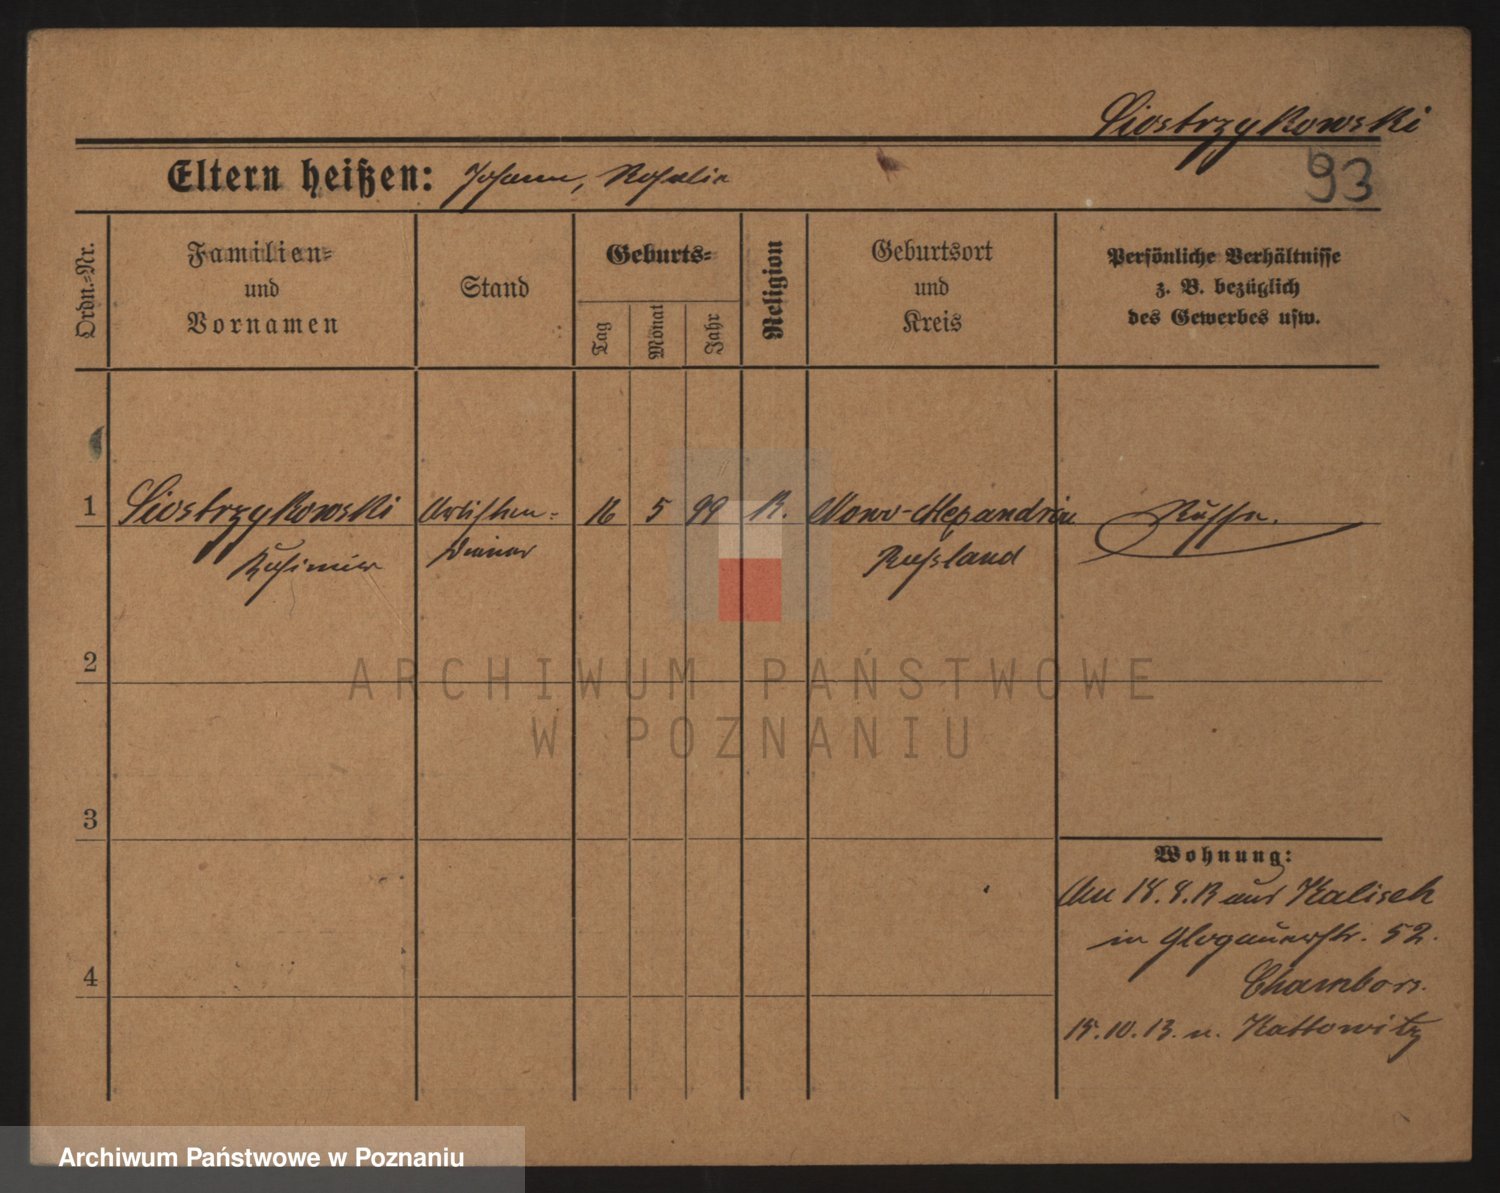 Siostrzykowski
93
Eltern heißen: Johann, Rosalie
Ordn.-Nr.
Familien-
und
Vornamen
Stand
Geburts-
Tag
Monat
Jahr
Religion
Geburtsort
und
Kreis
Persönliche Verhältnisse
z. B. bezüglich
des Gewerbes usw.
1 Siostrzykowski Artisten- 16 5 99 K. Nowo-Alexandria Russe.
Kasimier Diener Russland
2
3
4
Wohnung:
An 18.8.13 aus Kalisch
in Glogauerstr. 52.
Chambors.
15.10.13. n. Kattowitz
ARCHIWUM PAŃSTWOWE
W POZNANIU
Archiwum Państwowe w Poznaniu